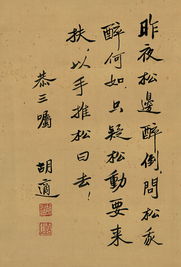 昨夜松邊醉倒問松我
醉何如只疑松動要來
扶,以手推松曰去!
恭三囑
胡適